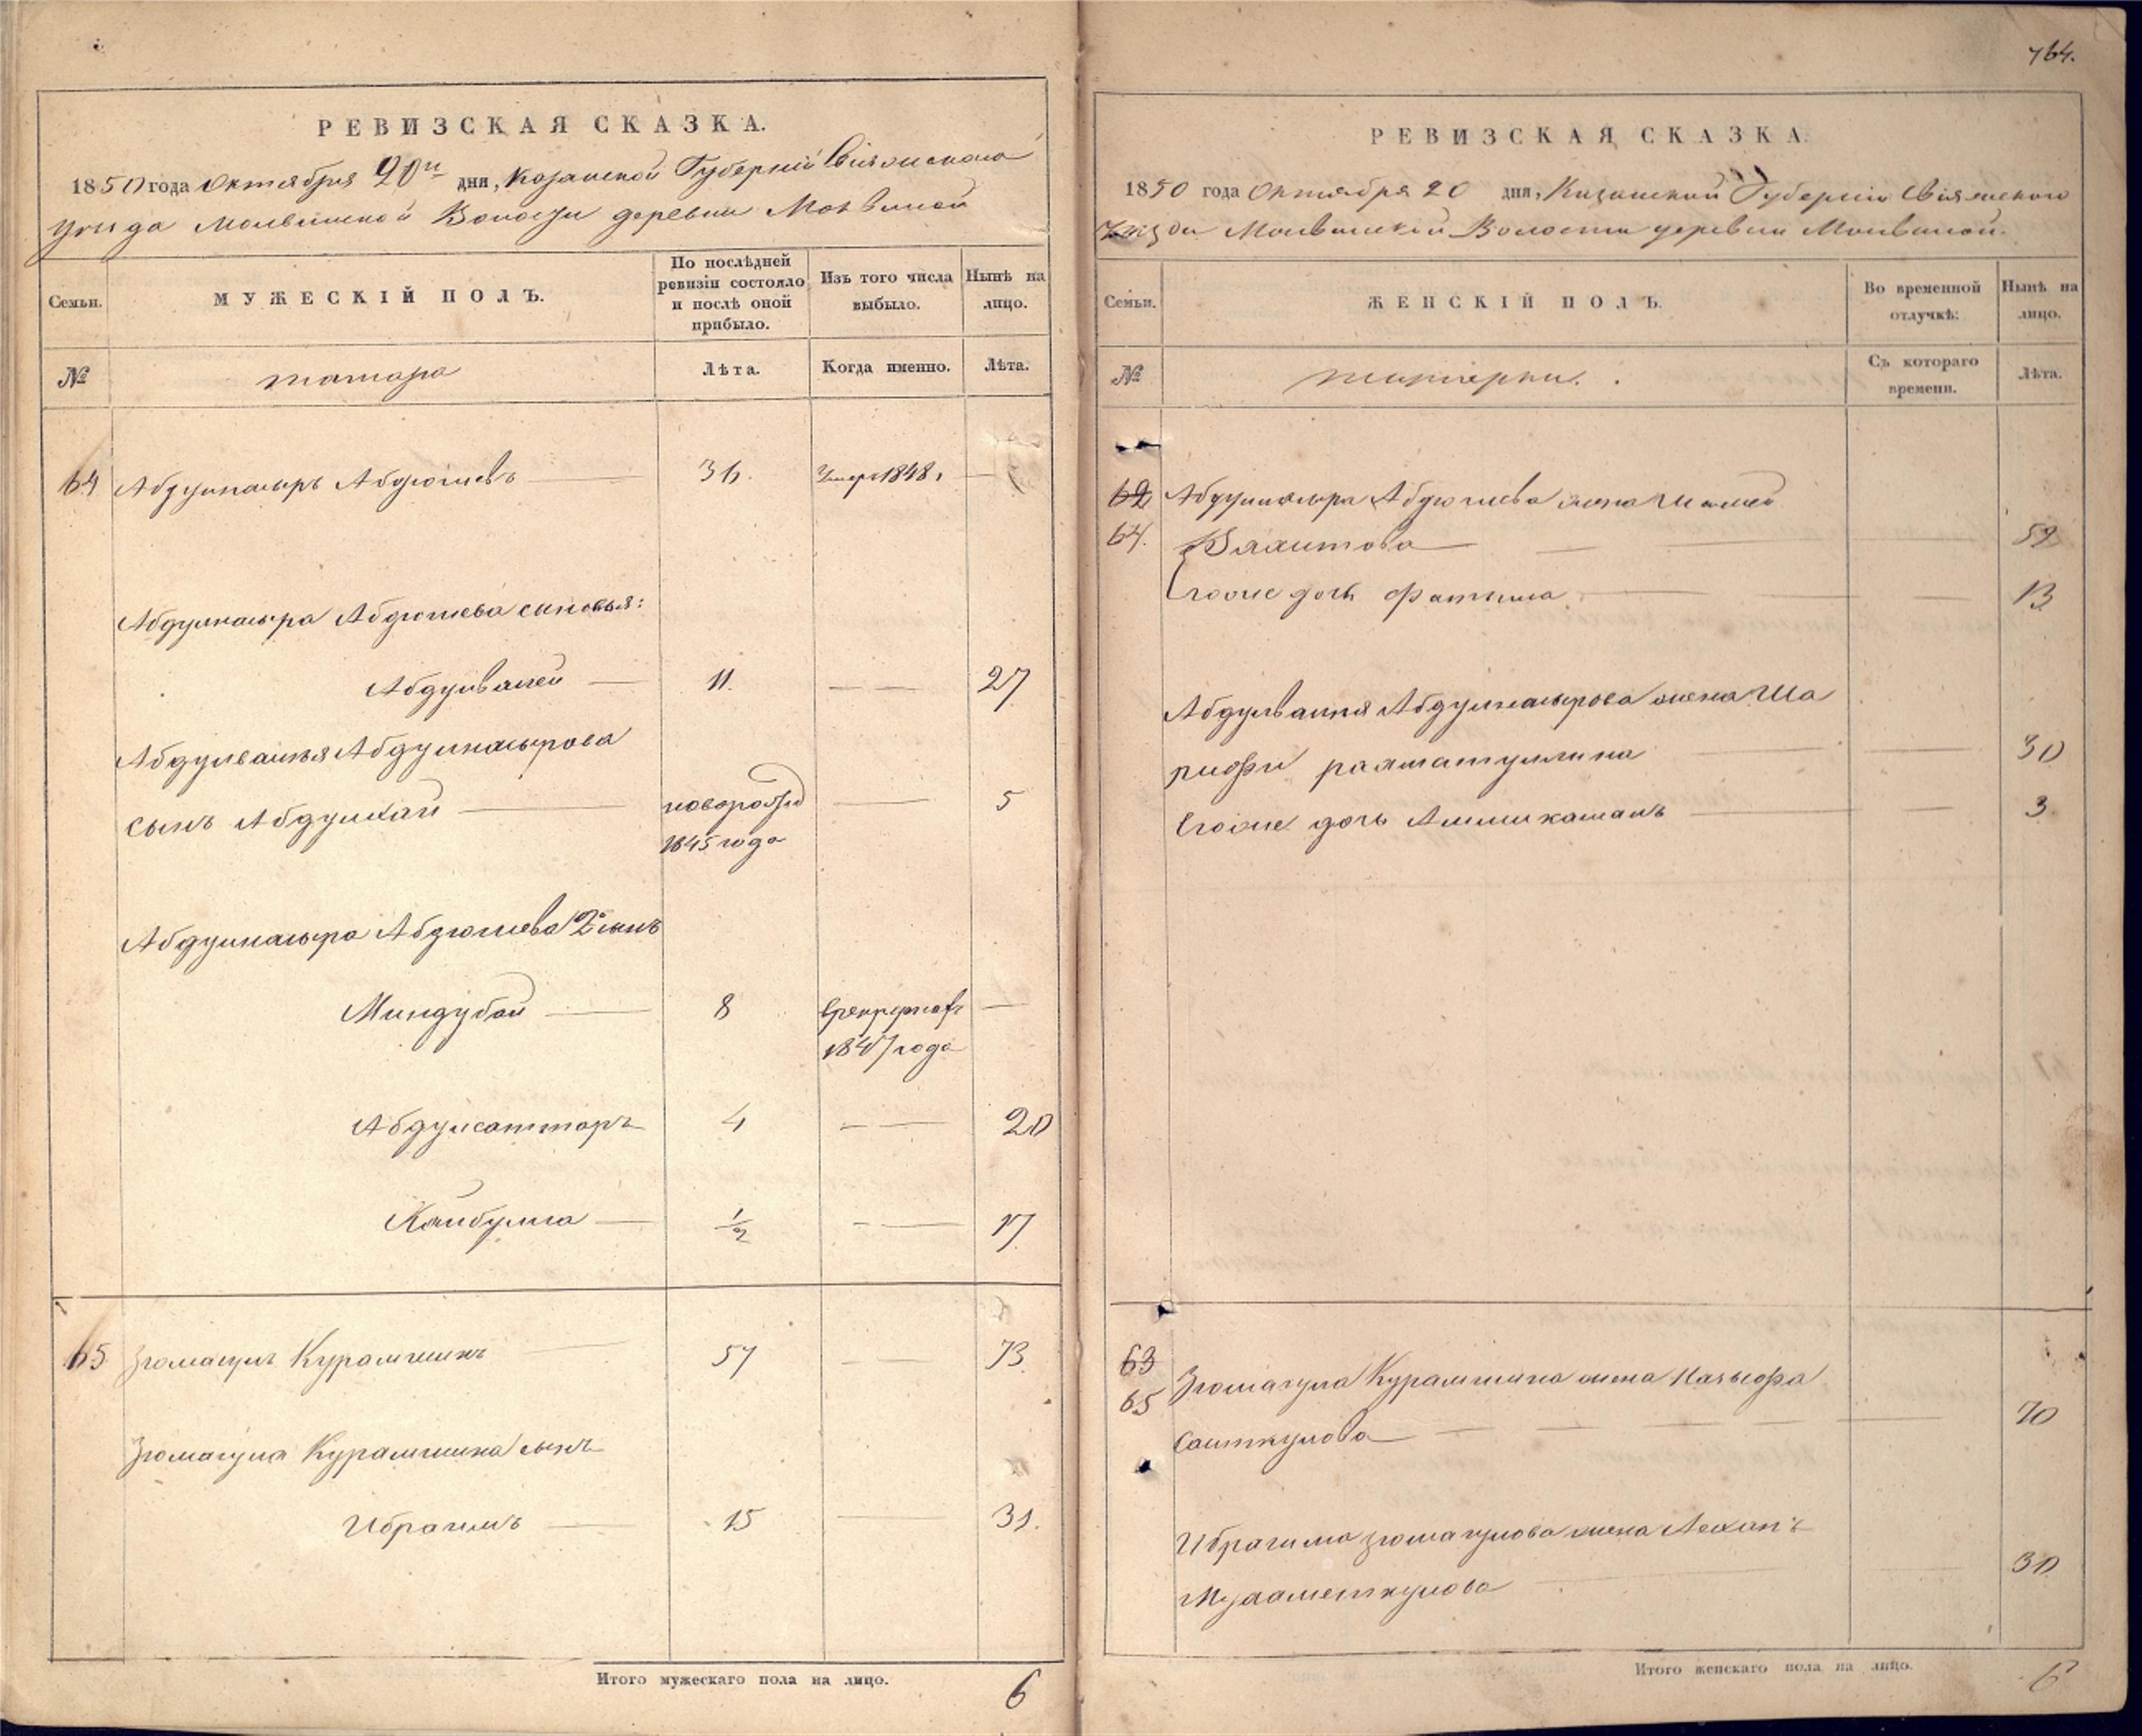 РЕВИЗСКАЯ СКАЗКА.
1850 года Октября 20го дня, Казанской Губерніи Свіяжскаго
уезда Молвинской Волости деревни Молвиной
Семьи.
МУЖЕСКІЙ ПОЛЪ.
По послѣдней ревизіи состояло и послѣ оной прибыло.
Изъ того числа выбыло.
Нынѣ на лицо.
№
татара
Лѣта.
Когда именно.
Лѣта.
64 Абдулнасыръ Абдюшевъ 36. Умеръ 1848.
Абдулнасыра Абдюшева сыновья:
Абдулвалей 11. 27
Абдулвалея Абдулнасырова
сынъ Абдулхай новорожд 5
1845 года
Абдулнасыра Абдюшева 2й сынъ
Миндубай 8 в рекрутахъ
1847 года
Абдулсаттаръ 4 20
Хайбулла ½ 17
65 Зюмагулъ Курамшинъ 57 73
Зюмагула Курамшина сынъ
Ибрагимъ 15 31.
Итого мужескаго пола на лицо. 6
764.
РЕВИЗСКАЯ СКАЗКА.
1850 года Октября 20 дня, Казанской Губерніи Свіяжскаго
Уезда Молвинской Волости деревни Молвиной.
Семьи.
ЖЕНСКІЙ ПОЛЪ.
Во временной отлучкѣ:
Нынѣ на лицо.
№
татарки.
Съ котораго времени.
Лѣта.
62 Абдулнасыра Абдюшева жена
64. Валитова 52
Его же дочь Фатыма 13
Абдулвалея Абдулнасырова жена Ша
рифи рахматуллина 30
Его же дочь 3
63
65 Зюмагула Курамшина жена
Саиткулова 70
Ибрагима зюмагулова жена
Мухаметкулова 30
Итого женскаго пола на лицо. 6